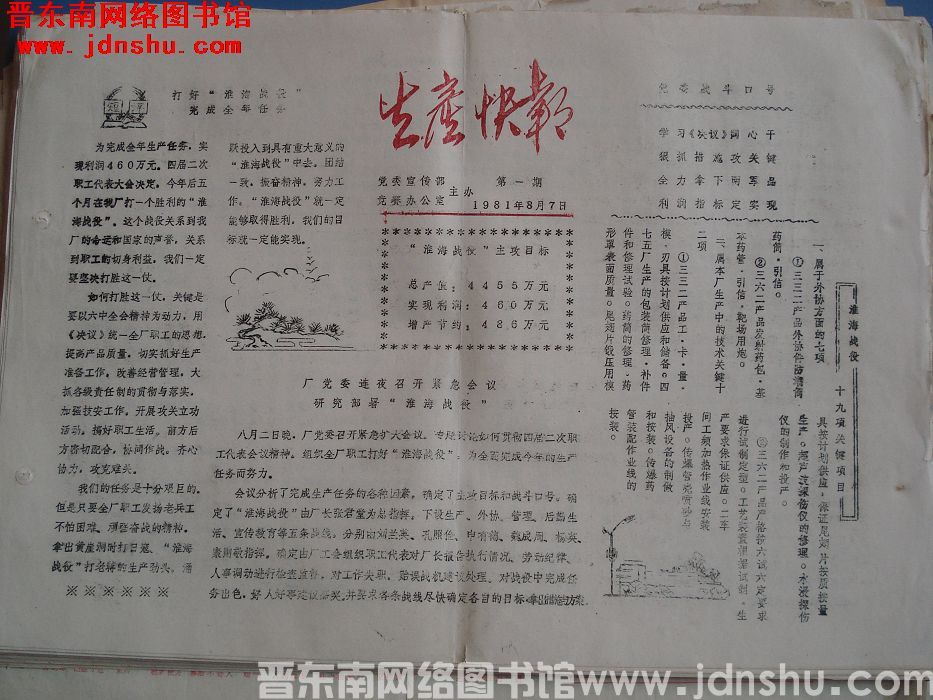 晋东南网络图书馆
www.jdnshu.com
短评
打好“淮海战役”
完成全年任务
为完成全年生产任务，实
现利润460万元。四届二次
职工代表大会决定，今年后五
个月在我厂打一个胜利的“淮
海战役”。这个战役关系到我
厂的命运和国家的声誉，关系
到职工的切身利益，我们一定
要坚决打胜这一仗。
如何打胜这一仗，关键是
要以六中全会精神为动力，用
《决议》统一全厂职工的思想，
提高产品质量，切实抓好生产
准备工作，改善经营管理，大
抓各级责任制的贯彻与落实，
加强技安工作，开展攻关立功
活动，搞好职工生活。前方后
方密切配合，协同作战。齐心
协力，攻克难关。
我们的任务是十分艰巨的，
但是只要全厂职工发扬老兵工
不怕困难、顽强奋战的精神，
拿出黄崖洞时打日寇、“淮海
战役”打老蒋的生产劲头，涌
※ ※ ※ ※ ※ ※
跃投入到具有重大意义的
“淮海战役”中去。团结
一致，振奋精神，努力工
作。“淮海战役”就一定
能够取得胜利，我们的目
标就一定能实现。
生产快报
党委宣传部
党委办公室
主办
第一期
1981年8月7日
“淮海战役”主攻目标
总产值：4455万元
实现利润：460万元
增产节约：486万元
厂党委连夜召开紧急会议
研究部署“淮海战役”
八月二日晚，厂党委召开紧急扩大会议。专题讨论如何贯彻四届二次职
工代表会议精神。组织全厂职工打好“淮海战役”，为全面完成今年的生产
任务而努力。
会议分析了完成生产任务的各种因素，确定了主攻目标和战斗口号。确
定了“淮海战役”由厂长张君堂为总指挥，下设生产、外协、管理、后勤生
活、宣传教育等五条战线。分别由刘兰英、孔照住、申有德、魏成周、杨英、
秦则敬指挥。确定由厂工会组织职工代表对厂长报告执行情况、劳动纪律、
人事调动进行检查监督，对工作失职、贻误战机建议处理。对战役中完成任
务出色，好人好事建议备奖。并要求各条战线尽快确定各自的目标，拿出措施方案。
党委战斗口号
学习《决议》同心干
狠抓措施攻关键
全力拿下两军品
利润指标定实现
淮海战役 十九项关键项目
一、属于外协方面的七项
①三三二产品外协件防潮筒
药筒、引信。
②三六二产品发射药包、基
本药管、引信、靶场用炮。
二、属本厂生产中的技术关键十
二项
①三三二产品工、卡、量、
模、刃具按计划供应和储备。四
七五厂生产的包装筒修理、补件
件和修理试验。药筒的修理、药
形罩表面质量。尾翅片锻压用模
具按计划供应，保证尾翅片按质按量
生产。超声波探伤仪的修理。水浸探伤
仪的制作和投产。
②三六二产品严格按六试六定要求
进行试制定型。工艺装置根据试制、生
产要求保证供应。二车
间工频加热作业线安装
投产。传爆管壳喷砂与
抽风设备的制做
和按装。传爆药
管装配作业线的
按装。
晋东南网络图书馆 www.jdnshu.com